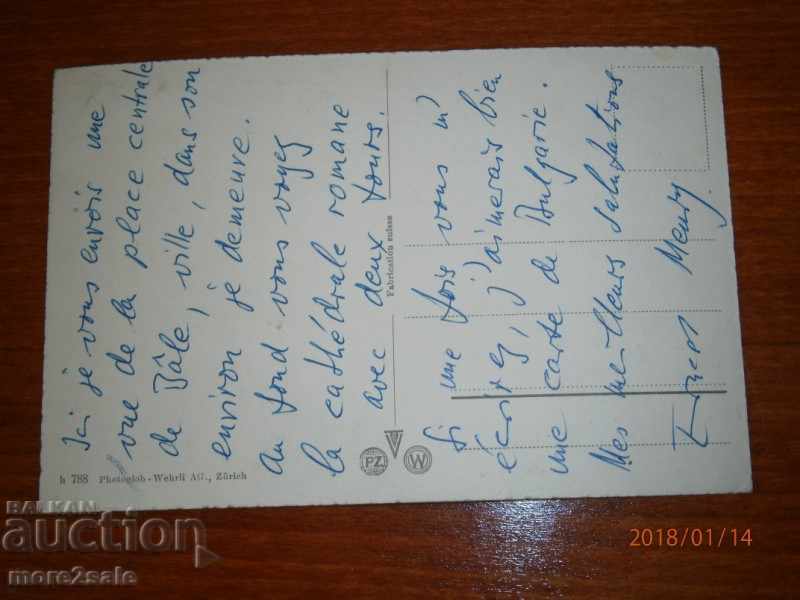 Ici je vous envois une
vue de la place centrale
de Bâle, ville, dans son
environ je demeure.
Au fond vous voyez
la cathédrale romane
avec deux tours.
Fabrication suisse
PZ
W
Si une fois vous m'
écrivez, j'aimerais bien
une carte de Bulgarie.
Mes meilleurs salutations
h 788 Photoglob-Wehrli AG., Zürich
BALKAN
auction
more2sale
2018/01/14